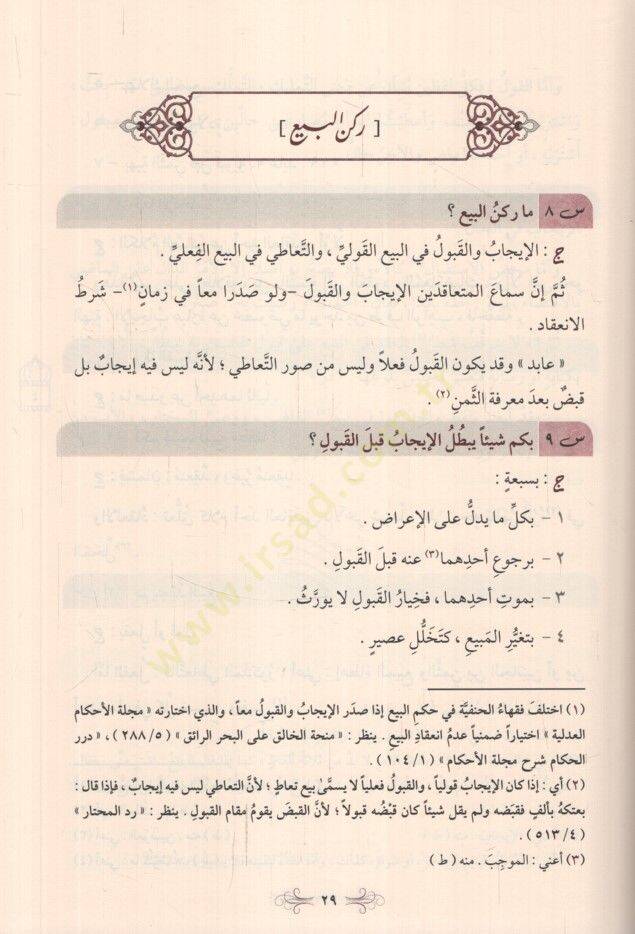 [ ركن البيع ]
س ٨ ما ركنُ البيع ؟
ج : الإيجابُ والقَبولُ في البيع القَوليِّ ، والتَّعاطي في البيع الفِعليِّ .
ثُمَّ إنَّ سماعَ المتعاقدَين الإيجابَ والقَبولَ –ولو صَدَرا معاً في زمانٍ(١)– شَرطُ
الانعقاد .
« عابد » وقد يكون القَبولُ فعلاً وليس من صور التَّعاطي ؛ لأنَّه ليس فيه إيجابٌ بل
قبضٌ بعدَ معرفة الثَّمنِ(٢) .
س ٩ بكم شيئاً يبطُلُ الإيجابُ قبلَ القَبولِ ؟
ج : بسبعةٍ :
١ – بكلِّ ما يدلُّ على الإعراض .
٢ – برجوعِ أحدِهما(٣) عنه قبلَ القَبولِ .
٣ – بموتِ أحدِهما ، فخِيارُ القَبولِ لا يورَّثُ .
٤ – بتغيُّرِ المَبيعِ ، كتَخَلُّلِ عصيرٍ .
(١) اختلفَ فقهاءُ الحنفيَّة في حكمِ البيع إذا صدَر الإيجابُ والقبولُ معاً ، والذي اختارته « مجلة الأحكام
العدلية » اختياراً ضمنياً عدمُ انعقادِ البيعِ . ينظر : « منحة الخالق على البحر الرائق » ( ٥/ ٢٨٨ ) ، « درر
الحكام شرح مجلة الأحكام » ( ١/ ١٠٤ ) .
(٢) أي : إذا كان الإيجابُ قولياً ، والقبولُ فعلياً لا يسمَّىٰ بيع تعاطٍ ؛ لأنَّ التعاطي ليس فيه إيجابٌ ، فإذا قال :
بعتكَهُ بألفٍ فقبَضه ولم يقل شيئاً كان قبْضُه قبولاً ؛ لأنَّ القبضَ يقومُ مقامَ القبولِ . ينظر : « رد المحتار »
( ٤/ ٥١٣ ) .
(٣) أعني : الموجِبَ . منه ( ط )
٢٩
www.irsad.com.tr